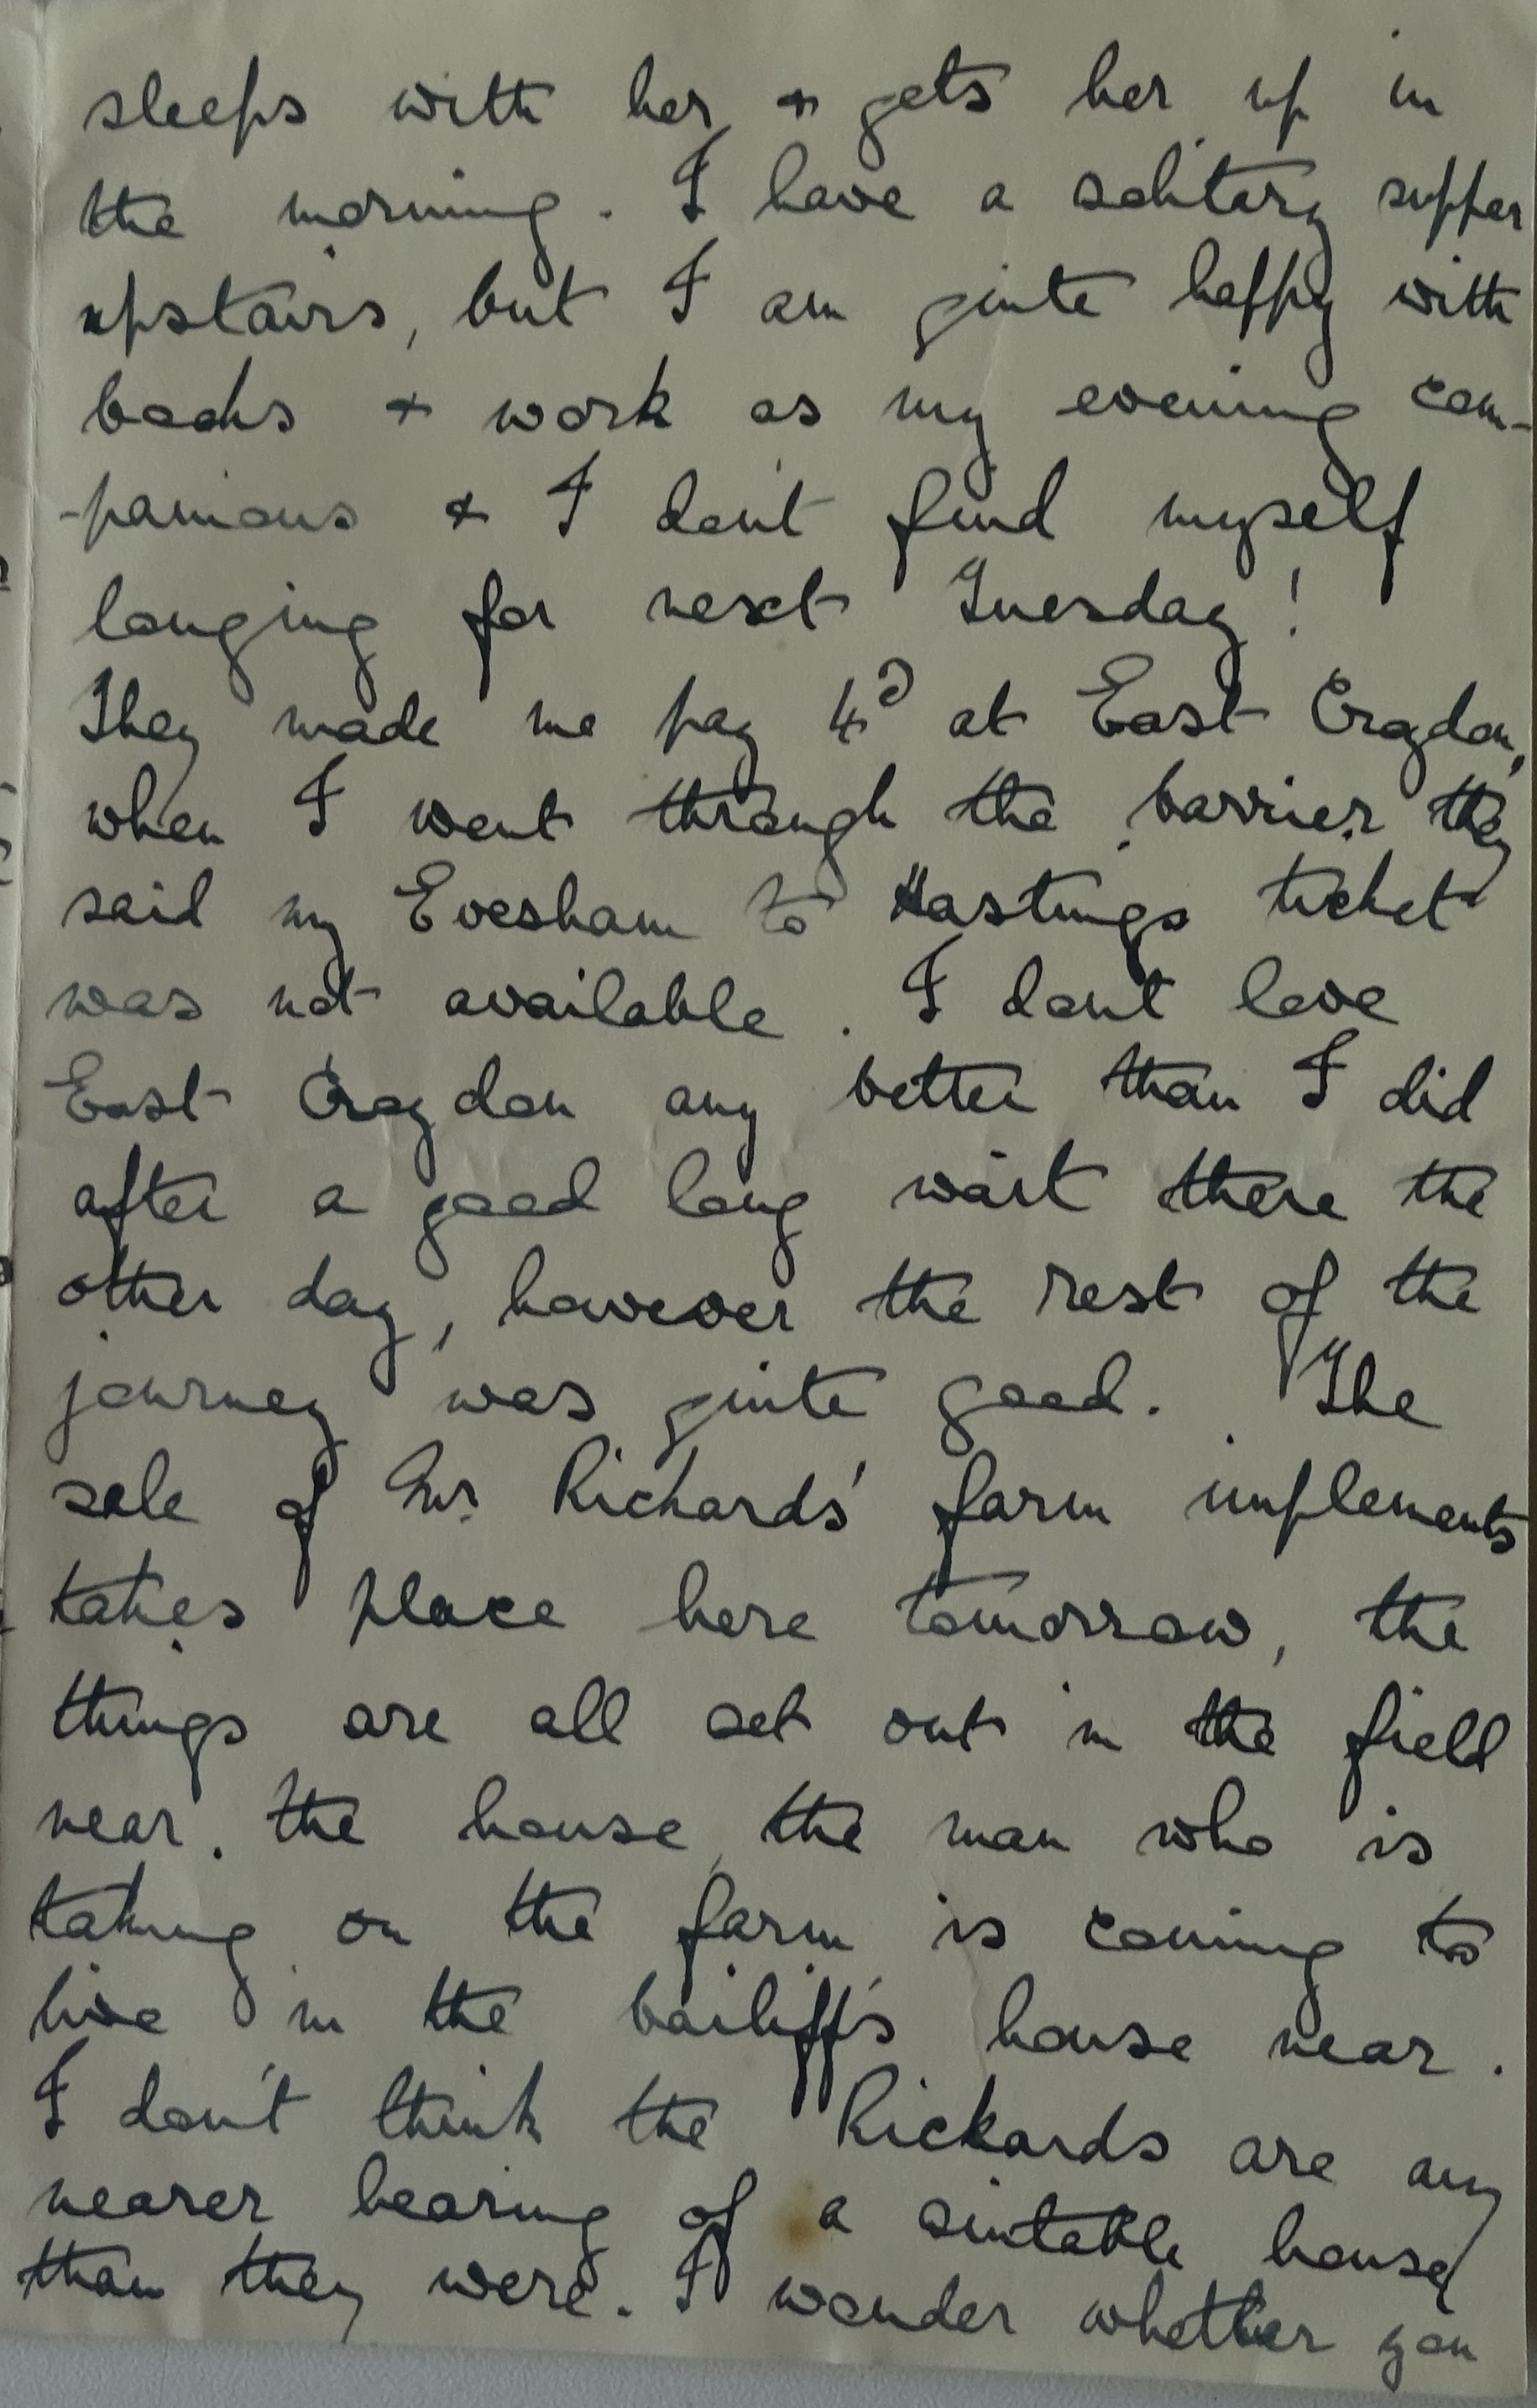 sleeps with her & gets her up in
the morning. I have a solitary supper
upstairs, but I am quite happy with
books & work as my evening com-
-panions & I don't find myself
longing for next Tuesday!
They made me pay 4d at East Croydon,
when I went through the barrier they
said my Evesham to Hastings ticket
was not available. I dont love
East Croydon any better than I did
after a good long wait there the
other day, however the rest of the
journey was quite good. The
sale of Mr. Richards' farm implements
takes place here tomorrow, the
things are all set out in the field
near the house, the man who is
taking on the farm is coming to
live in the bailiff's house near.
I don't think the Rickards are any
nearer hearing of a suitable house
than they were. I wonder whether you